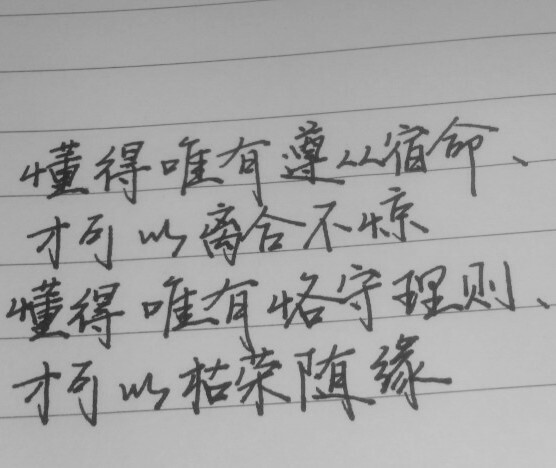 懂得唯有遵从宿命、
才可以离合不惊
懂得唯有恪守理则、
才可以枯荣随缘